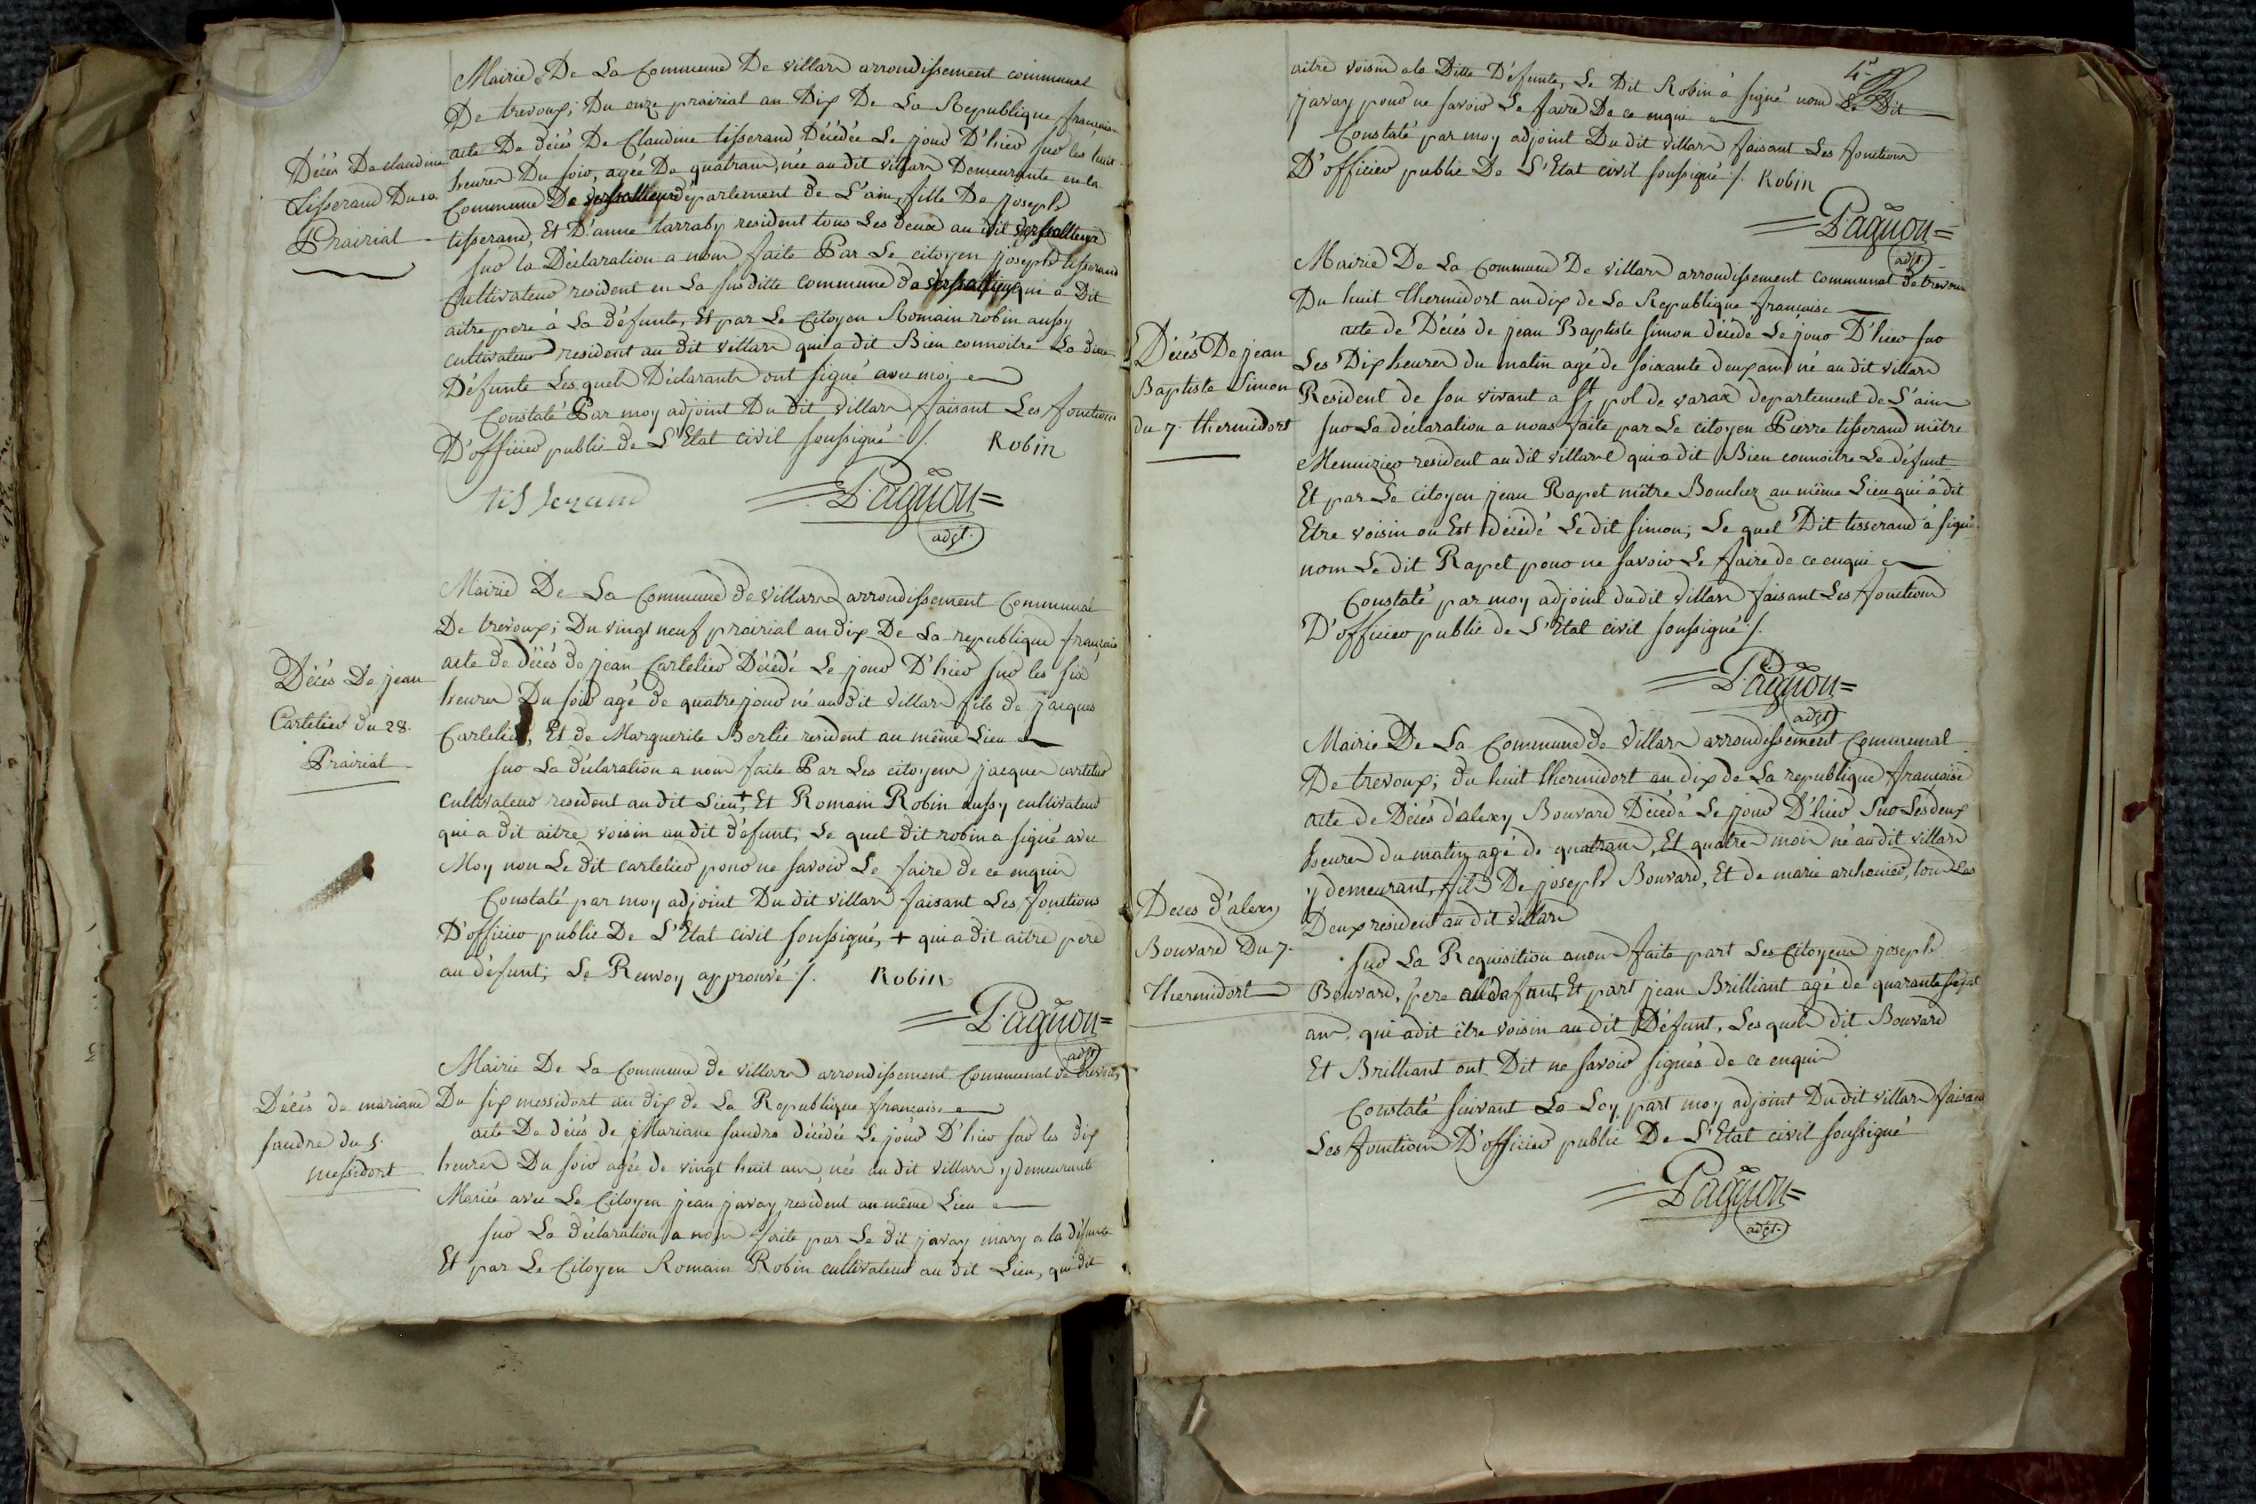 Mairie De La Commune De villars arrondissement communal
De trevoux; Du onze prairial an Dix De La Republique française
Décés De claudine
Tisserand Du 10
Prairial
acte De décés De Claudine tisserand Décédée Le jour D'hier sur les huit
heures Du soir, agée De quatre ans, née au dit villars Demeurante en la
Commune De département de L'ain, fille De joseph
tisserand, Et D'anne Larraby resident tous Les deux au dit
sur la Déclaration a nous faite Par Le citoyen joseph tisserand
Cultivateur resident en La sus ditte commune de qui a Dit
aitre pere à La défunte, Et par Le Citoyen Romain robin aussy
cultivateur resident au dit villars qui a dit Bien connoitre La ditte
Défunte Les quels Déclarants ont signé avec moy
Constaté Par moy adjoint Du dit villars faisant Les fonctions
D'officier public de L'Etat civil soussigné ./. Robin
tisserand Pagnon
adjt.
Mairie De La Commune de villars arrondissement Communal
De trevoux; Du vingt neuf prairial an dix De La republique française
Décés De jean
Cartelier du 28.
Prairial
acte de décés de jean Cartelier Décédé Le jour D'hier sur les six
heures Du soir agé de quatre jour né au dit villars fils de jacques
Cartelier, Et de Marguerite Berlie resident au même Lieu
sur La déclaration a nous faite Par Les citoyens jacques cartelier
cultivateur resident au dit Lieu +, Et Romain Robin aussy cultivateur
qui a dit aitre voisin au dit défunt, Le quel dit robin a signé avec
Moy non Le dit cartelier pour ne savoir Le faire de ce enquis
Constaté par moy adjoint Du dit villars faisant Les fonctions
D'officier public De L'Etat civil soussigné, + qui a dit aitre pere
au défunt; Le Renvoy approuvé ./. Robin
Pagnon
adjt
Mairie De La Commune de villars arrondissement Communal de trevoux
Décés de mariane
faudra du 5.
messidort
Du six messidort an dix de La Republique française
acte De décés de Mariane faudra décédée Le jour D'hier sur les dix
heures Du soir agée de vingt huit ans, née au dit villars y demeurante
Mariée avec Le Citoyen jean javay, resident au même Lieu
sur La déclaration a nous faite par Le dit javay mary a la défunte
Et par Le Citoyen Romain Robin cultivateur au dit Lieu, qui dit
4e
aitre voisin a la Ditte Défunte, Le Dit Robin à signé non Le Dit
javay pour ne savoir Le faire De ce enquis
Constaté par moy adjoint Du dit villars faisant Les fonctions
D'officier public De L'Etat civil soussigné ./. Robin
Pagnon
adjt.
Mairie De La Commune De villars arrondissement communal de trevoux
Du huit thermidort an dix de La Republique française
Décés De jean
Baptiste Simon
du 7. thermidort
acte de Décés de jean Baptiste simon décédé Le jour D'hier sur
Les Dix heures du matin agé de soixante deux ans né au dit villars
Resident de son vivant a St pol de varax departement de L'ain
sur La déclaration a nous faite par Le citoyen Pierre tisserand mêtre
Menuizier resident au dit villars qui a dit Bien connoitre Le défunt
Et par Le citoyen jean Rapet mêtre Boucher au même Lieu qui à dit
Etre voisin ou Est décédé Le dit simon; Le quel Dit tisserand à signé
nom Le dit Rapet pour ne savoir Le faire de ce enquis
Constaté par moy adjoint du dit villars faisant Les fonctions
D'officier public de L'Etat civil soussigné ./.
Pagnon
adjt
Mairie De La Commune de villars arrondissement Communal
De trevoux; du huit thermidort an dix de La republique francaise
Deces d'alexy
Bouvard Du 7.
thermidort
acte de Décés d'alexy Bouvard Décédé Le jour D'hier sur Les deux
heures du matin, agé de quatre ans, Et quatre mois né au dit villars
y demeurant, fils De joseph Bouvard, Et de marie archenier, tous Les
Deux resident au dit villars
sur La Requisition a nous faite part Les Citoyens joseph
Bouvard, pere au défunt, Et part jean Brilliant agé de quarante sept
ans, qui a dit être voisin au dit Défunt, Les quels dit Bouvard
Et Brilliant ont Dit ne savoir signés de ce enquis
Constaté suivant La Loy part moy adjoint Du dit villars faisant
Les fonctions D'officier public De L'Etat civil soussigné
Pagnon
adjt.